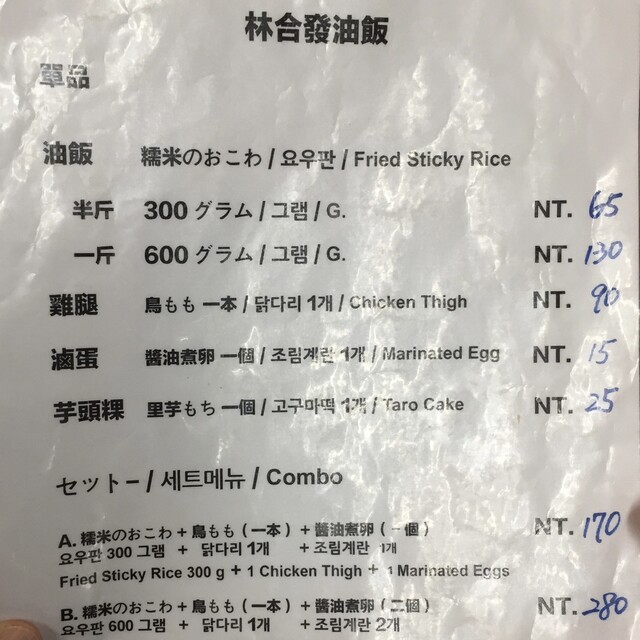 林合發油飯
單品
油飯 糯米のおこわ / 요우판 / Fried Sticky Rice
半斤 300 グラム / 그램 / G. NT. 65
一斤 600 グラム / 그램 / G. NT. 130
雞腿 鳥もも 一本 / 닭다리 1개 / Chicken Thigh NT. 90
滷蛋 醬油煮卵 一個 / 조림계란 1개 / Marinated Egg NT. 15
芋頭粿 里芋もち 一個 / 고구마떡 1개 / Taro Cake NT. 25
セットー / 세트메뉴 / Combo
A. 糯米のおこわ + 鳥もも (一本) + 醬油煮卵 (一個) NT. 170
요우판 300 그램 + 닭다리 1개 + 조림계란 1개
Fried Sticky Rice 300 g + 1 Chicken Thigh + 1 Marinated Eggs
B. 糯米のおこわ + 鳥もも (一本) + 醬油煮卵 (二個) NT. 280
요우판 600 그램 + 닭다리 1개 + 조림계란 2개